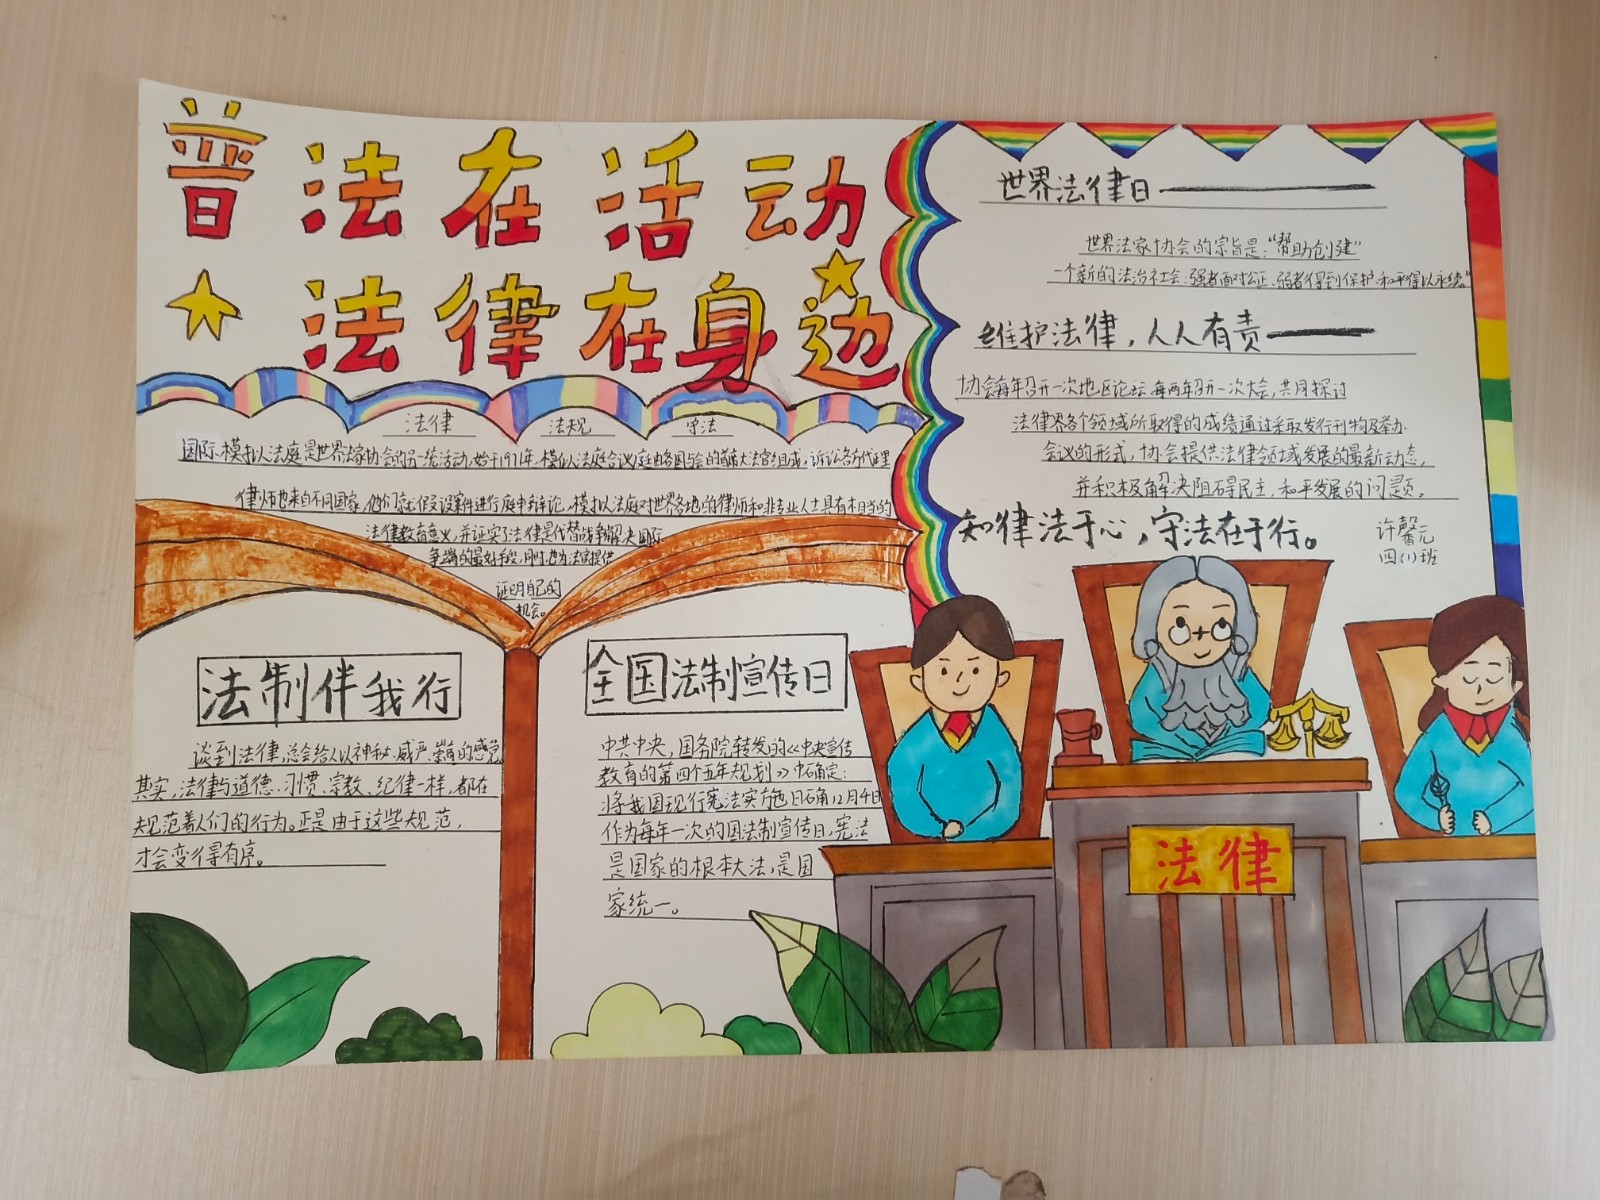 普法在活动
法律在身边
法律 法规 守法
国际模拟法庭是世界法家协会的另一统活动,始于1971年.模似法庭合议庭由各国与会的首席大法官组成,诉讼各方代理
律师也来自不同国家,他们就假设案件进行庭申辩论,模拟法庭对世界各地的律师和非专业人士具有相当的
法律教育意义,并证实了法律是代替战争解决国际
争端的最好手段,同时也为法官提供
证明自己的
机会。
法制伴我行
谈到法律,总会给人以神秘、威严、崇高的感觉
其实,法律与道德、习惯、宗教、纪律一样,都在
规范着人们的行为。正是由于这些规范,
才会变得有序。
全国法制宣传日
中共中央,国务院转发的《中央宣传
教育的第四个五年规划》中确定:
将我国现行宪法实施日确12月4日
作为每年一次的国法制宣传日,宪法
是国家的根本大法,是国
家统一。
世界法律日
世界法家协会的宗旨是:“帮助创建”
一个新的法治社会:强者面对公正、弱者得到保护、和平得以永续”
维护法律,人人有责
协会每年召开一次地区论坛,每两年召开一次大会,共同探讨
法律界各个领域所取得的成绩通过采取发行刊物及举办
会议的形式,协会提供法律领域发展的最新动态,
并积极解决阻碍民主,和平发展的问题。
知律法于心,守法在于行。
许馨元
四(1)班
法律